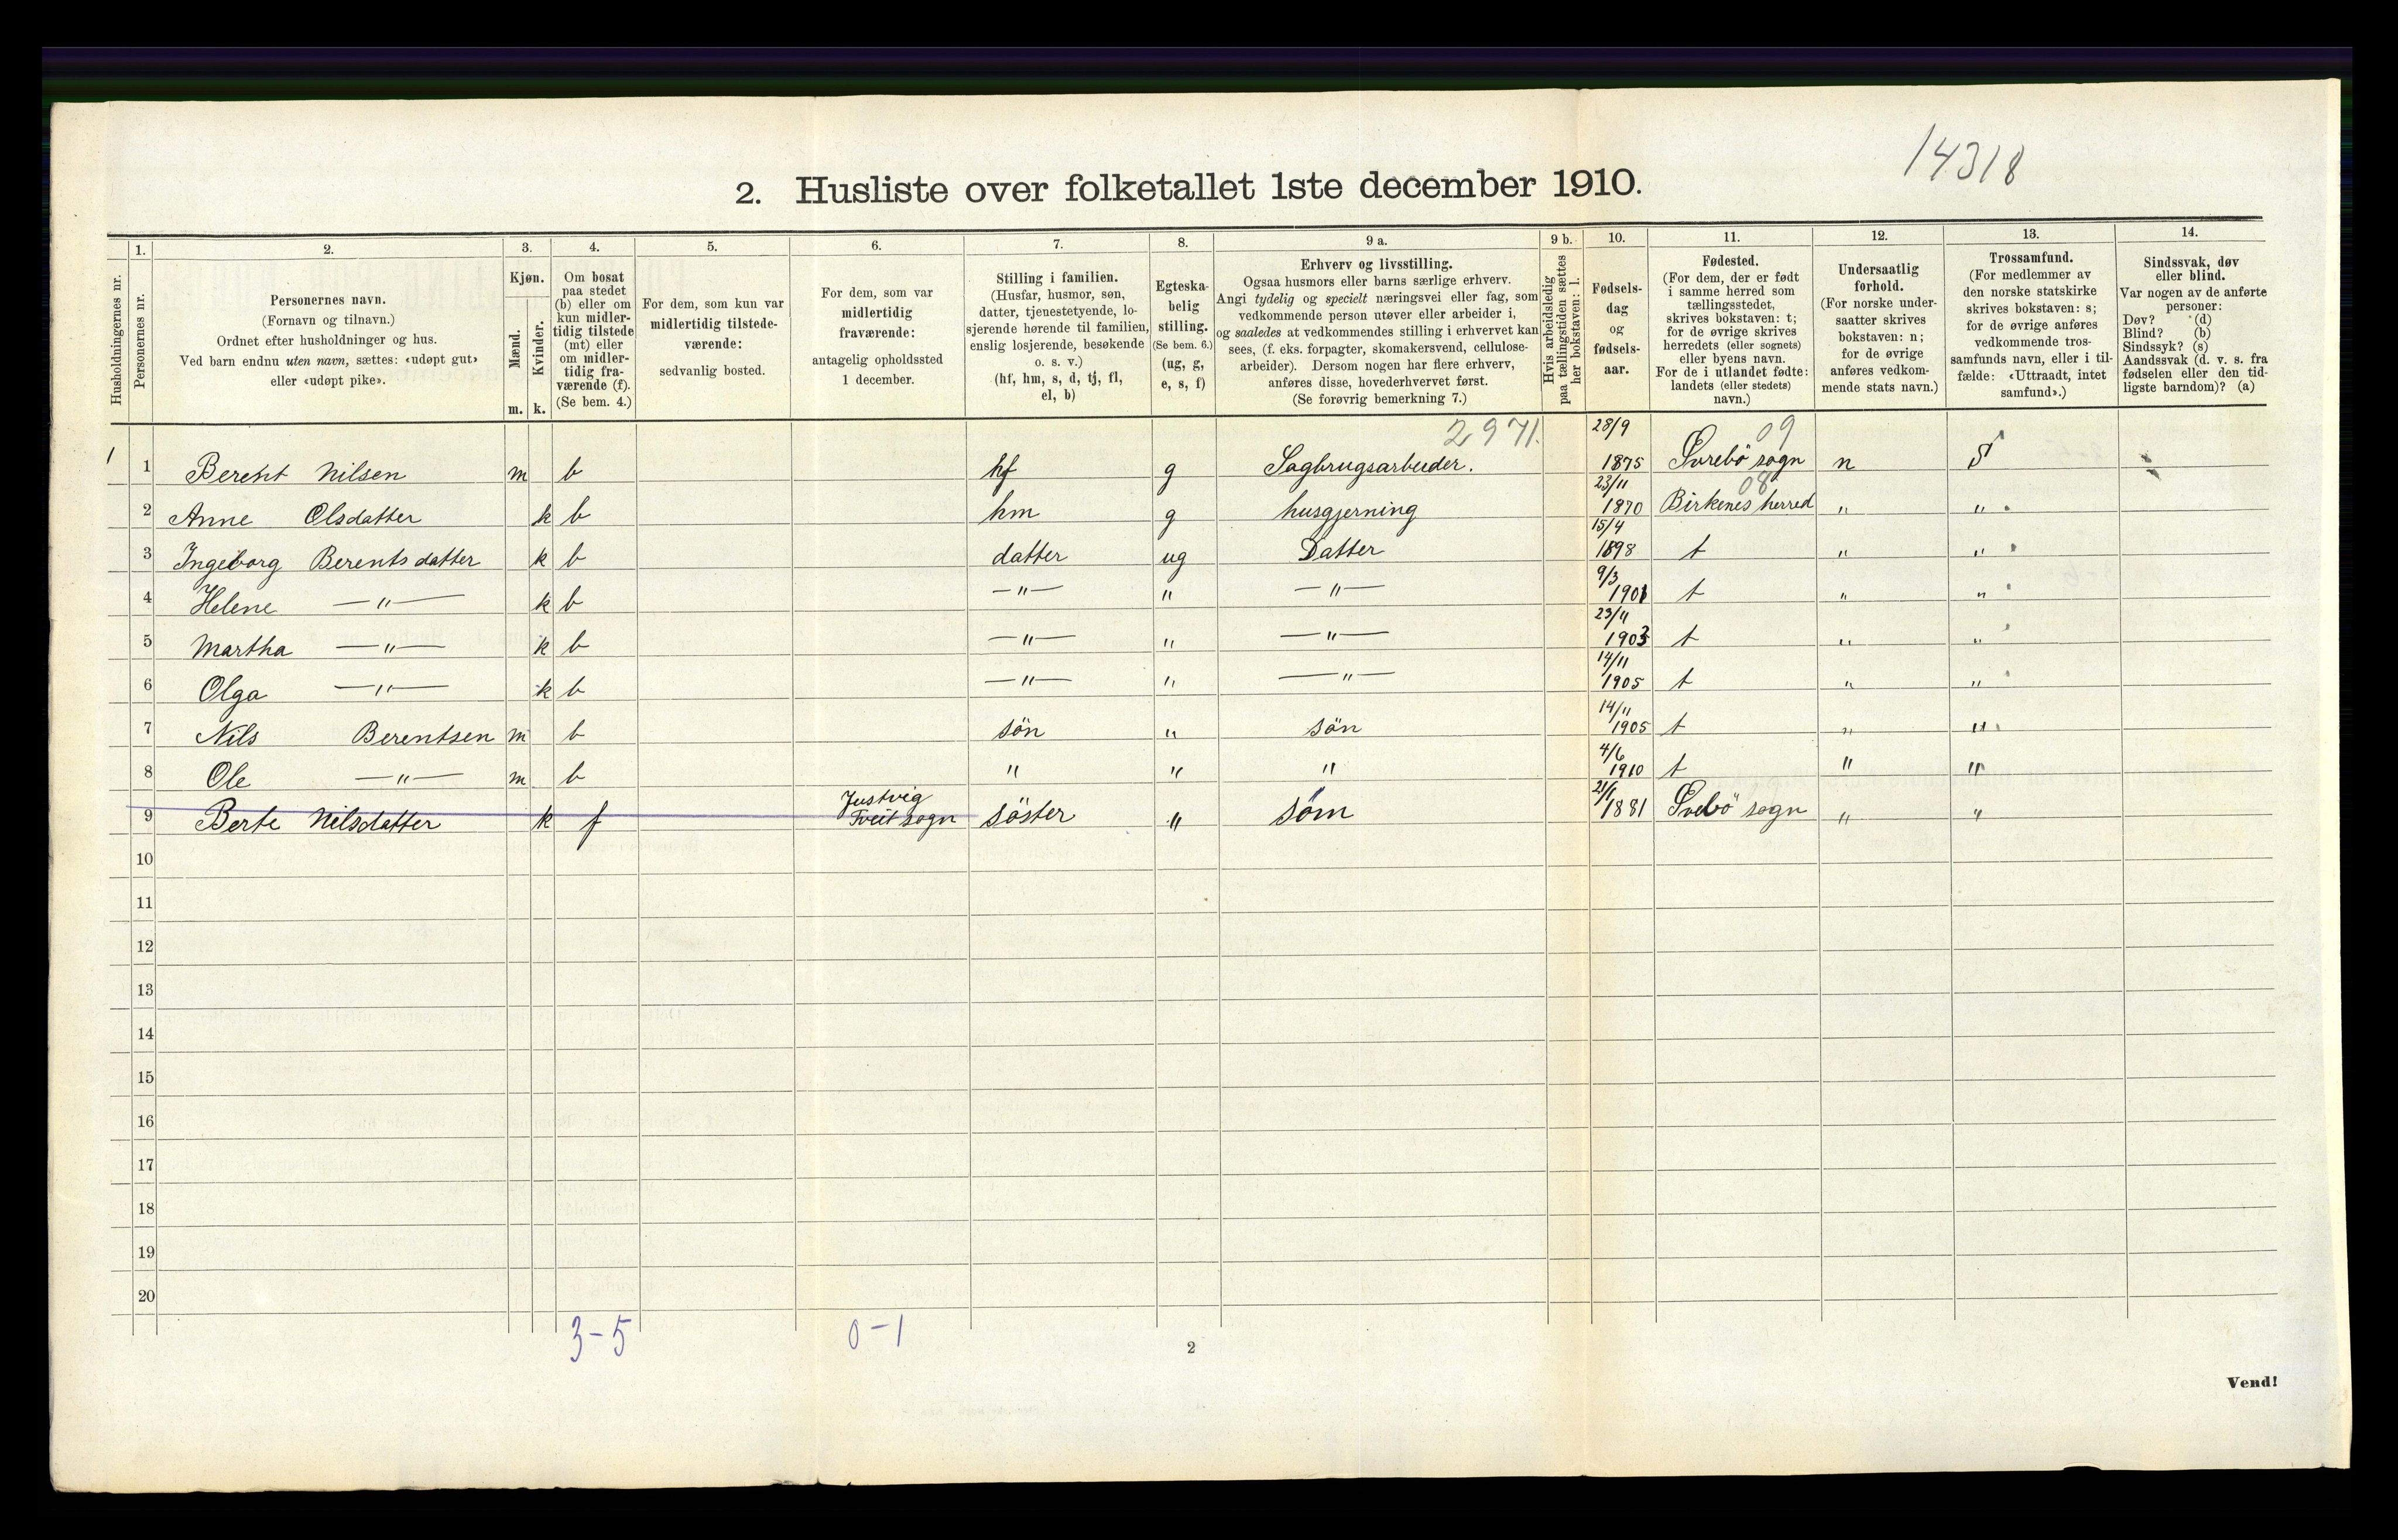 14318
2. Husliste over folketallet 1ste december 1910.
Husholdningernes nr.
1.
Personernes nr.
2.
Personernes navn.
(Fornavn og tilnavn.)
Ordnet efter husholdninger og hus.
Ved barn endnu uten navn, sættes: «udøpt gut»
eller «udøpt pike».
3.
Kjøn.
Mænd.
Kvinder.
m. k.
4.
Om bosat
paa stedet
(b) eller om
kun midler-
tidig tilstede
(mt) eller
om midler-
tidig fra-
værende (f).
(Se bem. 4.)
5.
For dem, som kun var
midlertidig tilstede-
værende:
sedvanlig bosted.
6.
For dem, som var
midlertidig
fraværende:
antagelig opholdssted
1 december.
7.
Stilling i familien.
(Husfar, husmor, søn,
datter, tjenestetyende, lo-
sjerende hørende til familien,
enslig losjerende, besøkende
o. s. v.)
(hf, hm, s, d, tj, fl,
el, b)
8.
Egteska-
belig
stilling.
(Se bem. 6.)
(ug, g,
e, s, f)
9 a.
Erhverv og livsstilling.
Ogsaa husmors eller barns særlige erhverv.
Angi tydelig og specielt næringsvei eller fag, som
vedkommende person utøver eller arbeider i,
og saaledes at vedkommendes stilling i erhvervet kan
sees, (f. eks. forpagter, skomakersvend, cellulose-
arbeider). Dersom nogen har flere erhverv,
anføres disse, hovederhvervet først.
(Se forøvrig bemerkning 7.)
9 b.
Hvis arbeidsledig
paa tællingstiden sættes
her bokstaven: l.
10.
Fødsels-
dag
og
fødsels-
aar.
11.
Fødested.
(For dem, der er født
i samme herred som
tællingsstedet,
skrives bokstaven: t;
for de øvrige skrives
herredets (eller sognets)
eller byens navn.
For de i utlandet fødte:
landets (eller stedets)
navn.)
12.
Undersaatlig
forhold.
(For norske under-
saatter skrives
bokstaven: n;
for de øvrige
anføres vedkom-
mende stats navn.)
13.
Trossamfund.
(For medlemmer av
den norske statskirke
skrives bokstaven: s;
for de øvrige anføres
vedkommende tros-
samfunds navn, eller i til-
fælde: «Uttraadt, intet
samfund».)
14.
Sindssvak, døv
eller blind.
Var nogen av de anførte
personer:
Døv? (d)
Blind? (b)
Sindssyk? (s)
Aandssvak (d. v. s. fra
fødselen eller den tid-
ligste barndom)? (a)
2971. 28/9 09
1 1 Berent Nilsen m b hf g Sagbrugsarbeider. 1875 sogn n S
23/11 08
2 Anne Olsdatter k b hm g husgjerning 1870 Birkenes herred " "
15/4
3 Ingeborg Berentsdatter k b datter ug Datter 1898 t " "
9/3
4 Helene —"— k b —"— " —"— 1901 t " "
5 Martha —"— k b —"— " —"— 1903 t " "
14/11
6 Olga —"— k b —"— " —"— 1905 t " "
14/11
7 Nils Berentsen m b sön " sön 1905 t " "
4/6
8 Ole —"— m b " " " 1910 t " "
Justvig 21/1
9 Berte Nilsdatter k f Tveit sogn söster " söm 1881 sogn " "
10
11
12
13
14
15
16
17
18
19
20
3-5 0-1
2
Vend!